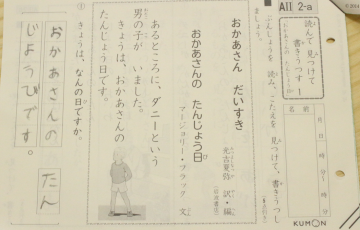 AII 2-a
読んで 見つけて
書きうつす！
おかあさんの たんじょう日
ぶんしょうを 読み、こたえを 見つけて、書きうつし
ましょう。
名前
月 日
時 分
時 分
KUMON
おかあさん だいすき
光吉夏弥 訳・編
おかあさんの たんじょう日
マージョリー・フラック 文
あるところに、ダニーという
男の子が いました。
きょうは、おかあさんの
たんじょう日です。
① きょうは、なんの日ですか。
おかあさんの たん
じょうびです。